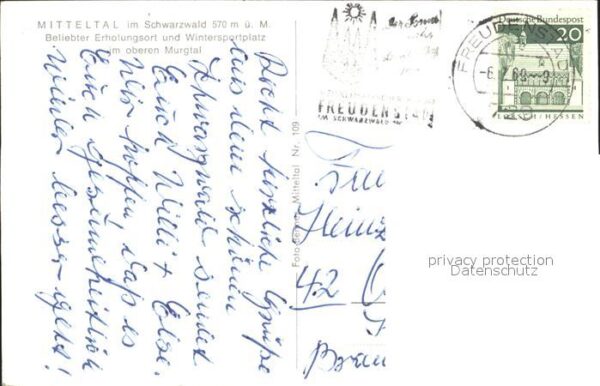 MITTELTAL im Schwarzwald 570 m ü. M.
Beliebter Erholungsort und Wintersportplatz
im oberen Murgtal
Recht herzliche Grüße
aus dem schönen
Schwarzwald sendet
Euch Willi + Elise.
Wir hoffen daß es
Euch gesundheitlich
wieder besser geht!
Mitteltal Nr. 109
FREUDENSTADT
IM SCHWARZWALD
FREUDENSTADT
Deutsche Bundespost
20
LORSCH/HESSEN
Heinz
42
privacy protection
Datenschutz